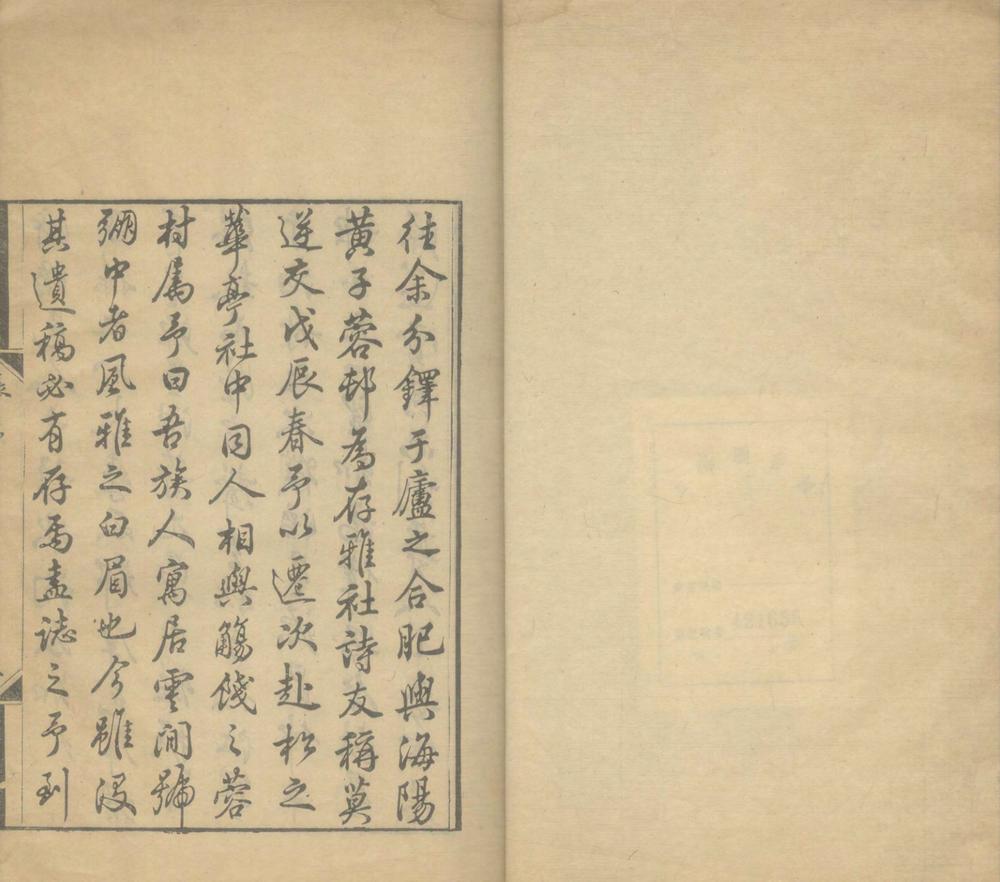 往余分鐸于廬之合肥與海陽
黃子蓉邨為存雅社詩友稱莫
逆交戊辰春予以遷次赴松之
華亭社中同人相與觴餞之蓉
村屬予曰吾族人寓居雲間號
弸中者風雅之白眉也今雖沒
其遺稿必有存焉盍誌之予到